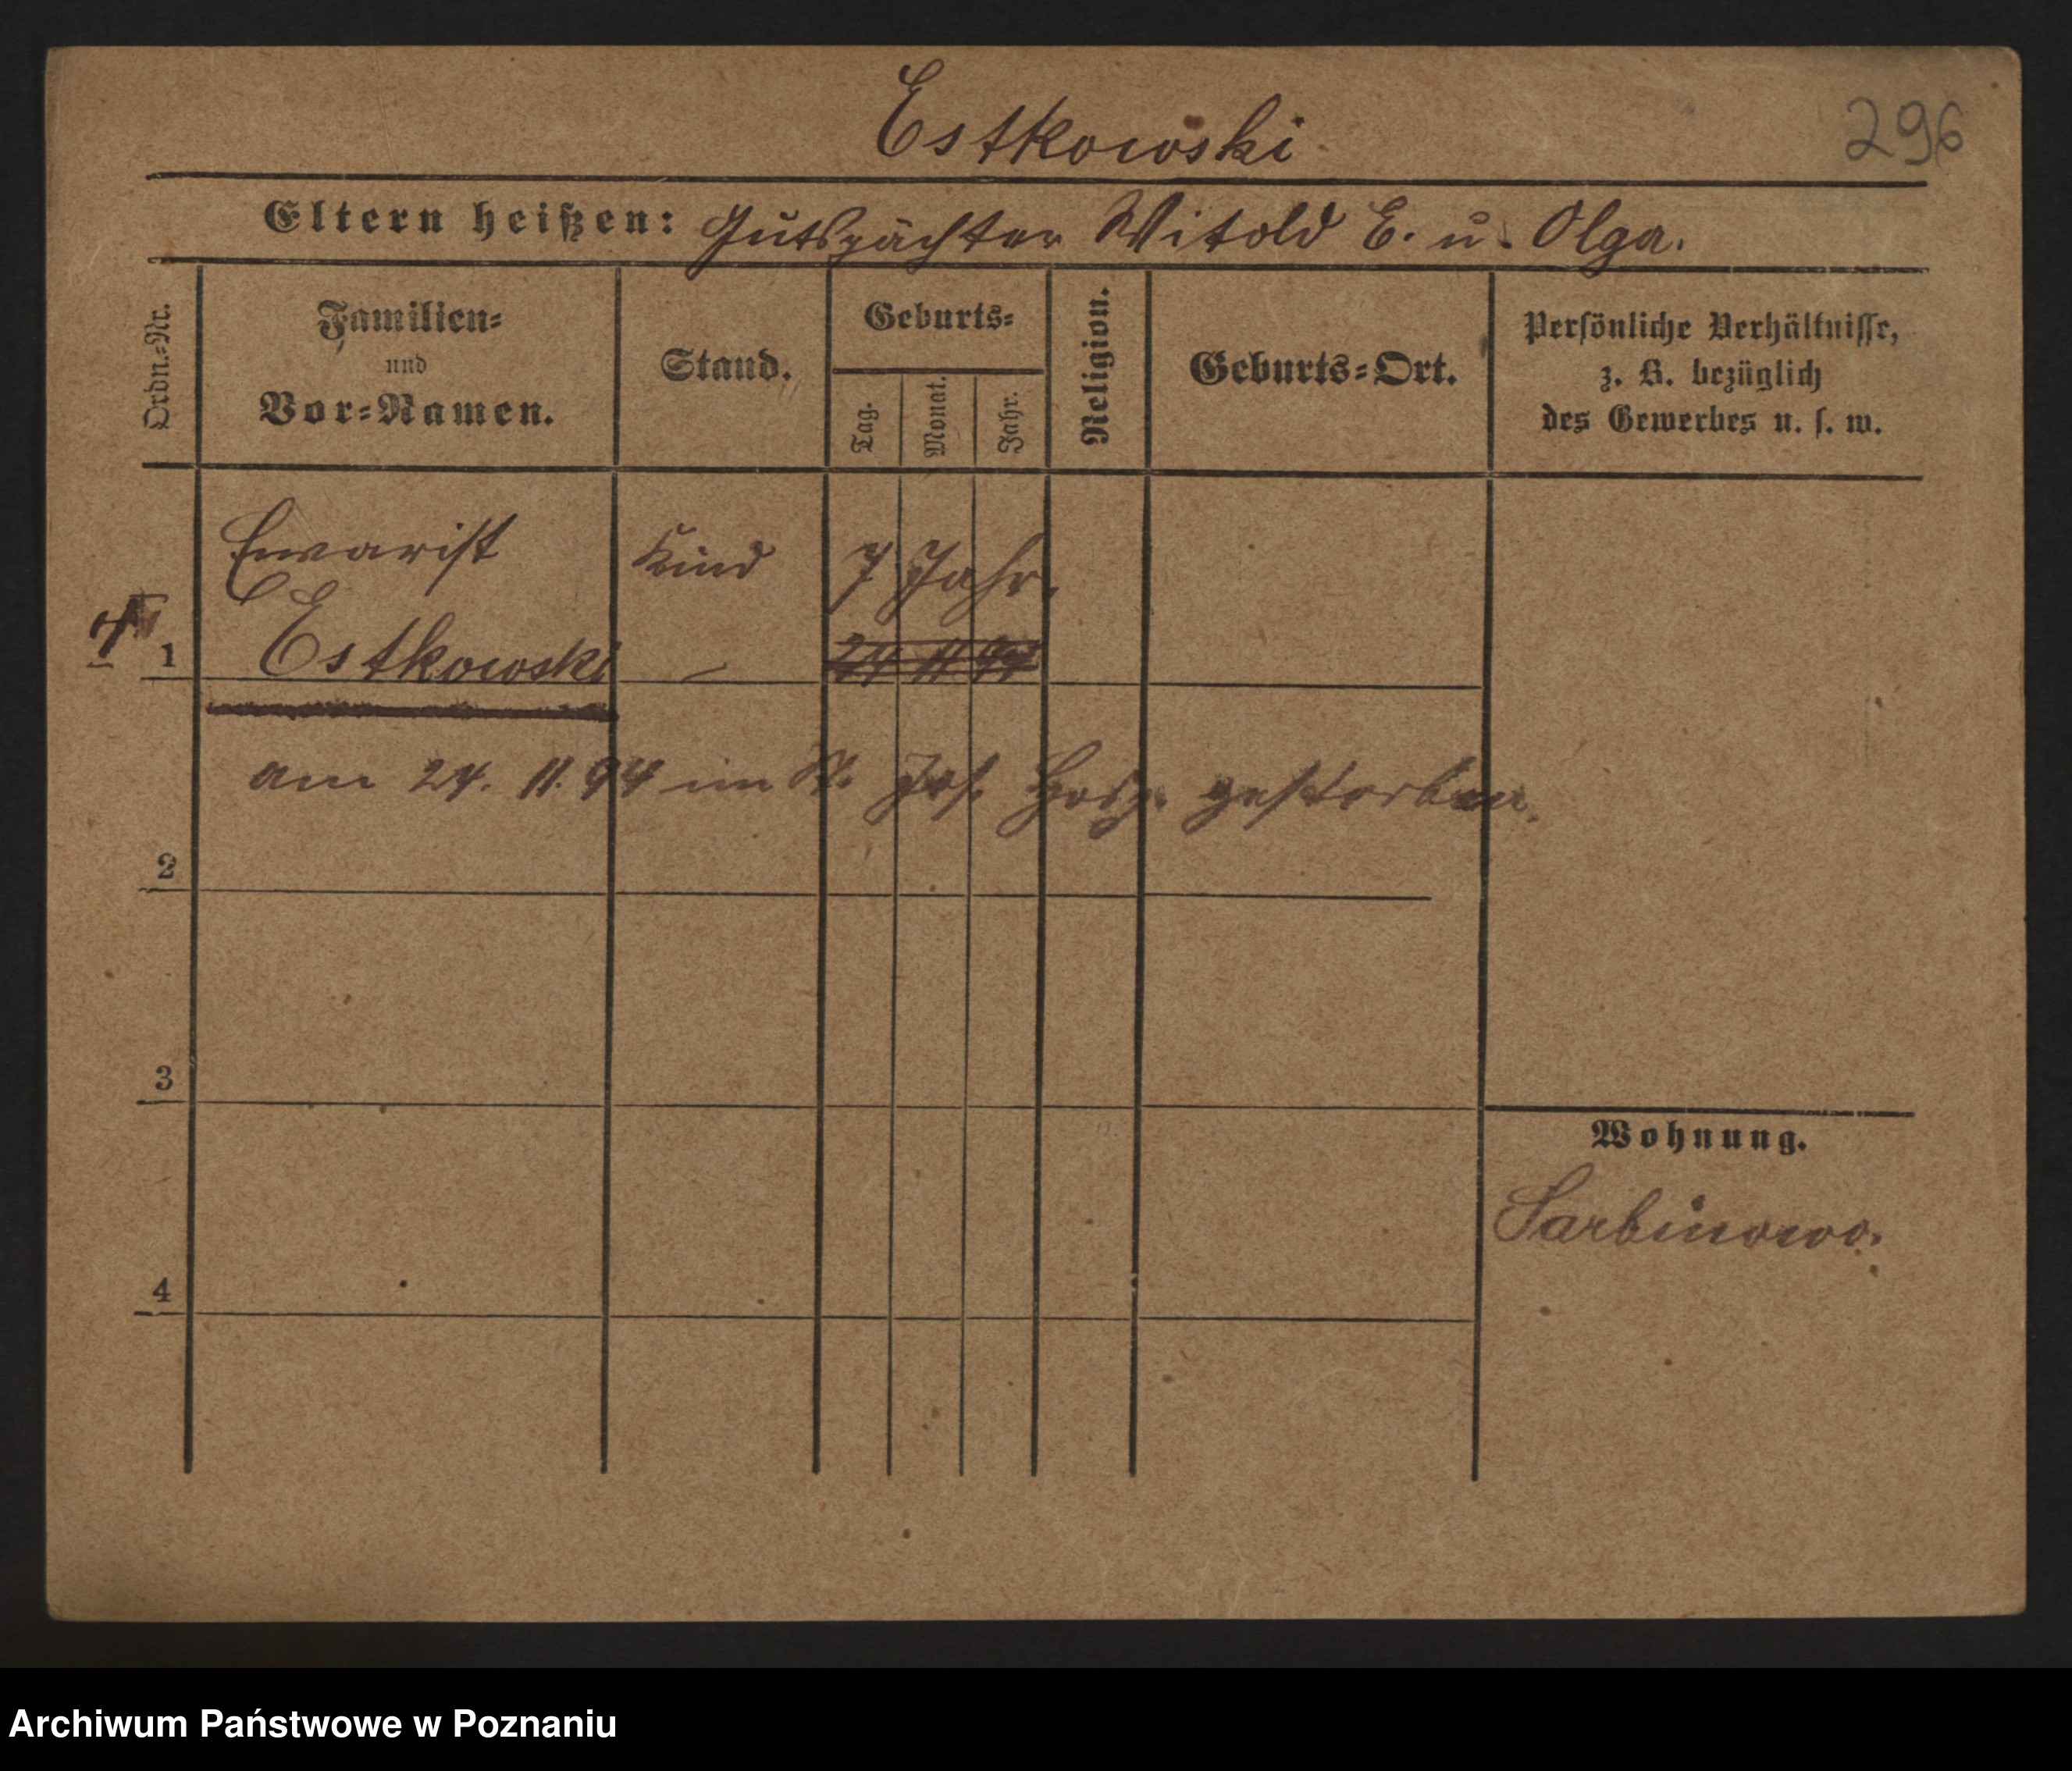 Estkowski
296
Eltern heißen: Gutspächter Witold E. u. Olga.
Ordn.=Nr.
Familien=
und
Vor=Namen.
Stand.
Geburts=
Tag.
Monat.
Jahr.
Religion.
Geburts=Ort.
Persönliche Verhältnisse,
z. B. bezüglich
des Gewerbes u. s. w.
Ewarist Kind 7 Jahr.
1 Estkowski 24 11 94
am 24. 11. 94 im St. Jos. Hosp. gestorben.
2
3
Wohnung.
Sarbinowo.
4
Archiwum Państwowe w Poznaniu